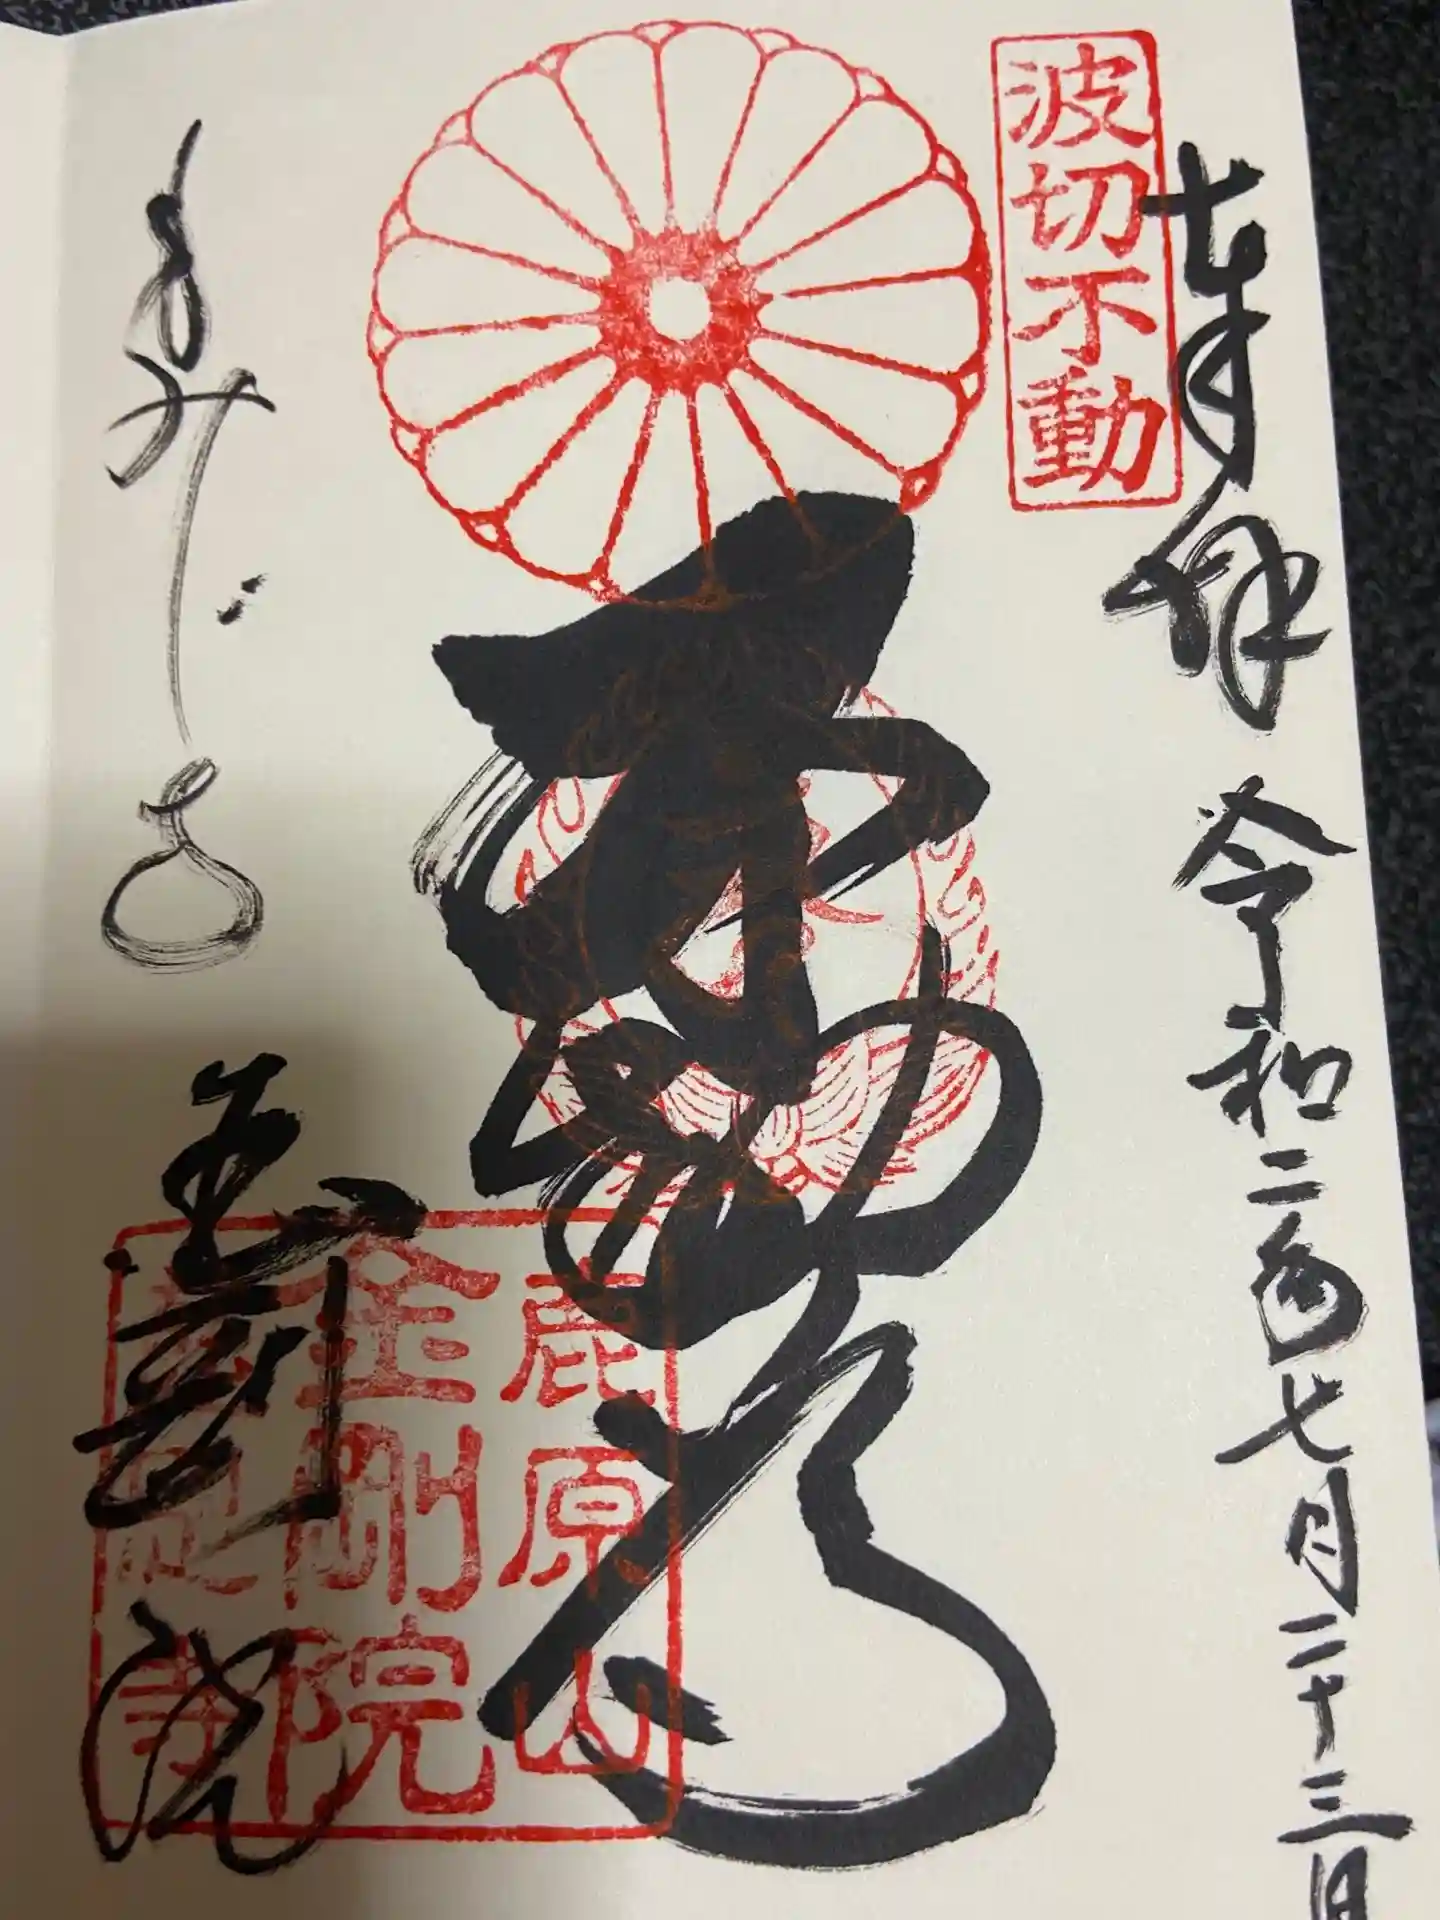 奉拝 令和二年七月二十三日
波切不動
不動尊
金剛院
鹿原山
金剛院
寺